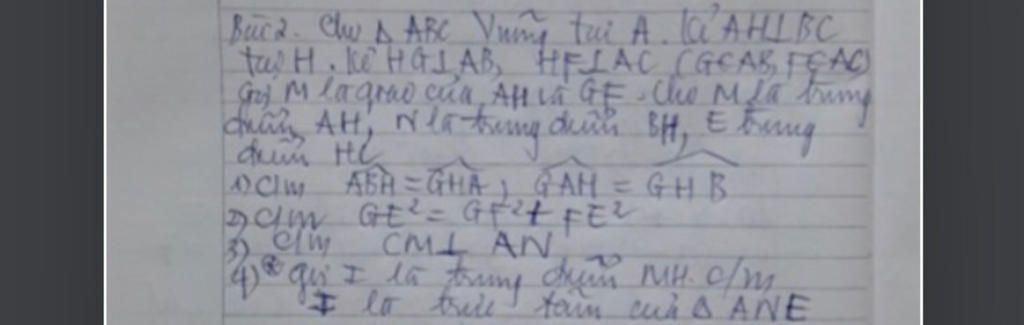 Bài 2. Cho Δ ABC Vuông tại A. Kẻ AH⊥BC
tại H. Kẻ HG⊥AB, HF⊥AC (G∈AB, F∈AC)
Gọi M là giao của AH và GF. Cho M là trung
điểm AH, N là trung điểm BH, E trung
điểm HC
1) C/m ABH = GHA, GAH = GHB
2) C/m GE² = GF² + FE²
3) C/m CM⊥ AN
4)* Gọi I là trung điểm MH. C/m
I là trực tâm của Δ ANE